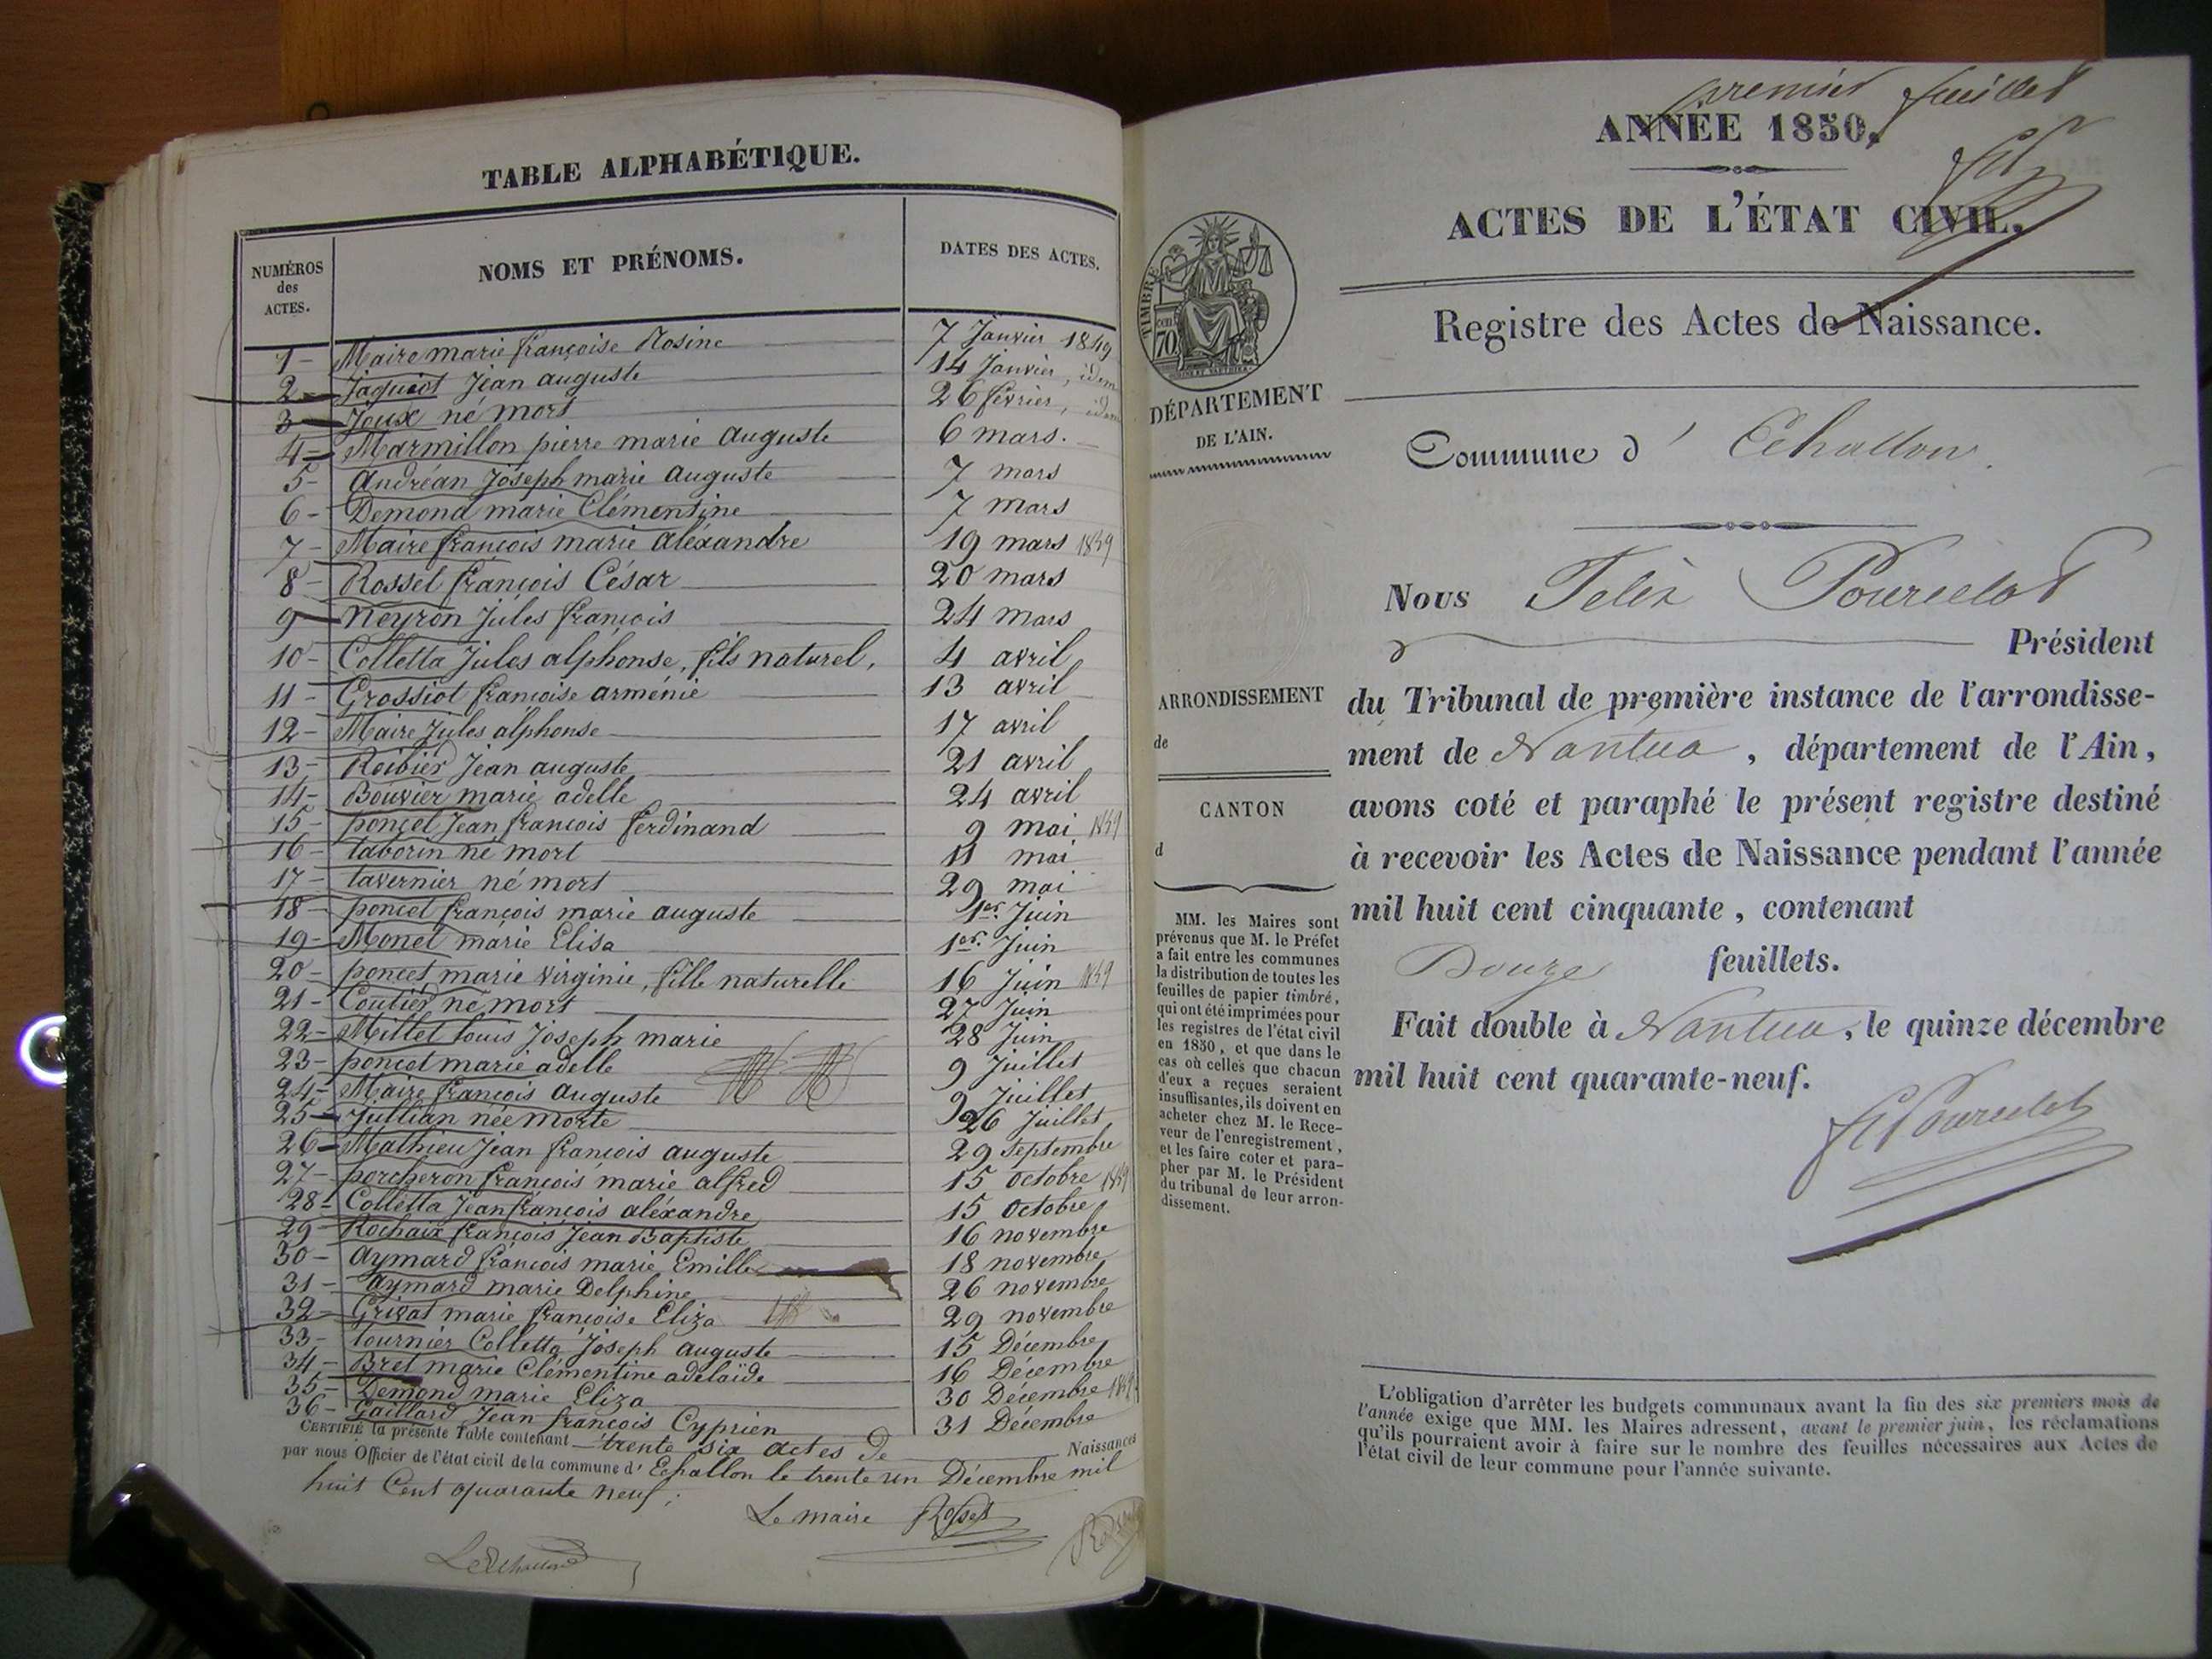 TABLE ALPHABÉTIQUE.
NUMÉROS des ACTES. NOMS ET PRÉNOMS. DATES DES ACTES.
1 - Maire marie françoise Rosine 7 Janvier 1849
2 - Jaquiot Jean auguste 14 Janvier, idem
3 - Joux né mort 26 février, idem
4 - Marmillon pierre marie auguste 6 mars.
5 - Andréan Joseph marie auguste 7 mars
6 - Demond marie Clémentine 7 mars
7 - Maire françois marie aléxandre 19 mars 1849
8 - Rossel françois César 20 mars
9 - Neyron Jules françois 24 mars
10 - Colletta Jules alphonse, fils naturel, 4 avril
11 - Grossiot françoise arménie 13 avril
12 - Maire Jules alphonse 17 avril
13 - Roibier Jean auguste 21 avril
14 - Bouvier marie adelle 24 avril
15 - poncet Jean françois ferdinand 9 mai 1849
16 - taborin né mort 11 mai
17 - tavernier né mort 29 mai
18 - poncet françois marie auguste 1er. Juin
19 - Monet marie Elisa 1er. Juin
20 - poncet marie virginie, fille naturelle 16 Juin 1849
21 - Coutier né mort 27 Juin
22 - Millet louis Joseph marie 28 Juin
23 - poncet marie adelle 9 Juillet
24 - Maire françois auguste 9 Juillet
25 - Jullian née morte 26 Juillet
26 - Mathieu Jean françois auguste 29 Septembre
27 - porcheron françois marie alfred 15 octobre 1849
28 - Colletta Jean françois aléxandre 15 Octobre
29 - Rochaix françois Jean Baptiste 16 novembre
30 - aymard françois marie Emille 18 novembre
31 - aymard marie Delphine 26 novembre
32 - Grivat marie françoise Eliza 29 novembre
33 - tournier Colletta Joseph auguste 15 Décembre
34 - Bret marie Clémentine adelaïde 16 Décembre
35 - Demond marie Eliza 30 Décembre 1849
36 - Gaillard Jean françois Cyprien 31 Décembre
CERTIFIÉ la présente Table contenant trente six actes de Naissances
par nous Officier de l'état civil de la commune d' Echallon le trente un Décembre mil
huit Cent quarante neuf;
Le maire Rosset
premier feuillet
ANNÉE 1850.
ACTES DE L'ÉTAT CIVIL.
Registre des Actes de Naissance.
TIMBRE
70
DÉPARTEMENT
DE L'AIN.
ARRONDISSEMENT
de
CANTON
d
MM. les Maires sont
prévenus que M. le Préfet
a fait entre les communes
la distribution de toutes les
feuilles de papier timbré,
qui ont été imprimées pour
les registres de l'état civil
en 1850, et que dans le
cas où celles que chacun
d'eux a reçues seraient
insuffisantes, ils doivent en
acheter chez M. le Rece-
veur de l'enregistrement,
et les faire coter et para-
pher par M. le Président
du tribunal de leur arron-
dissement.
Commune d' Echallon
Nous Felix Pourcelot
Président
du Tribunal de première instance de l'arrondisse-
ment de Nantua, département de l'Ain,
avons coté et paraphé le présent registre destiné
à recevoir les Actes de Naissance pendant l'année
mil huit cent cinquante, contenant
Douze feuillets.
Fait double à Nantua, le quinze décembre
mil huit cent quarante-neuf.
Pourcelot
L'obligation d'arrêter les budgets communaux avant la fin des six premiers mois de
l'année exige que MM. les Maires adressent, avant le premier juin, les réclamations
qu'ils pourraient avoir à faire sur le nombre des feuilles nécessaires aux Actes de
l'état civil de leur commune pour l'année suivante.